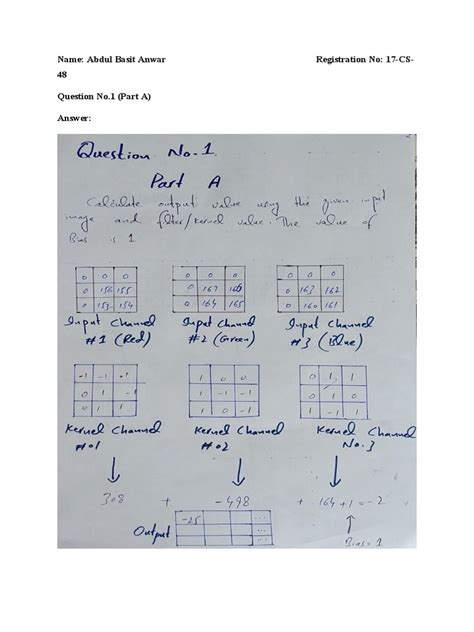 Name: Abdul Basit Anwar Registration No: 17-CS-
48
Question No.1 (Part A)
Answer:
Question No.1
Part A
Calculate output value using the given input
image and filter/kernel value. The value of
Bias is 1
0 0 0
0 156 155
0 153 154
0 0 0
0 167 166
0 164 165
0 0 0
0 163 162
0 160 161
Input Channel
#1 (Red)
Input Channel
#2 (Green)
Input Channel
#3 (Blue)
-1 -1 1
0 1 -1
0 1 1
1 0 0
1 -1 -1
1 0 -1
0 1 1
0 1 0
1 -1 1
Kernel Channel
#01
Kernel Channel
#02
Kernel Channel
No.3
308 + -498 + 164 + 1 = -2
-25 ...
Output ...
Bias = 1